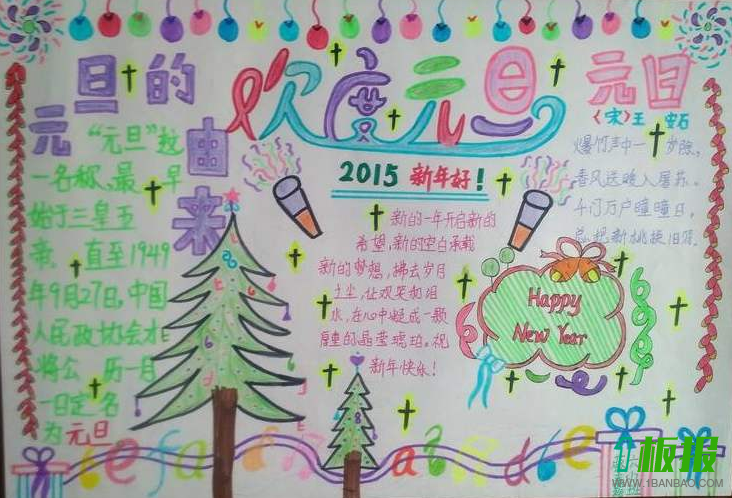 欢度元旦
元旦的由来
"元旦"这
一名称，最早
始于三皇五
帝。直至1949
年9月27日，中国
人民政协会才
将公历一月
一日定名
为元旦
2015 新年好！
新的一年开启新的
希望，新的空白承载
新的梦想，拂去岁月
土尘，让欢笑和泪
水，在心中凝成一颗
厚重的晶莹琥珀。祝
新年快乐！
元日
（宋）王安石
爆竹声中一岁除，
春风送暖入屠苏。
千门万户曈曈日，
总把新桃换旧符。
Happy
New Year
板报
WWW.1BANBAO.COM